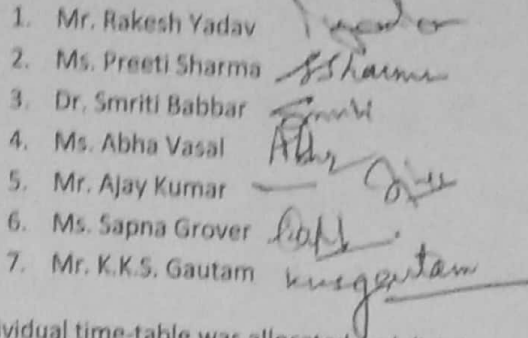 1. Mr. Rakesh Yadav
2. Ms. Preeti Sharma SSharma
3. Dr. Smriti Babbar Smriti
4. Ms. Abha Vasal Abha
5. Mr. Ajay Kumar
6. Ms. Sapna Grover
7. Mr. K.K.S. Gautam kksgautam
ividual time-table was